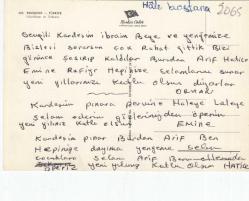 Hale bostana 2065
Sevgili Kardeşim ibraim Beye ve yengemize
Bizleri sorarsan çok Rahat gittik Bizi
görünce şaşırıp Kaldılar Buradan Arif Hatice
Emine Refiye Hepinize Selamlarını sunar
yeni yıllarınızı Kutlu olsun dilerler
ORHAN
Kardeşim pınara pervine Haleye Laleye
Selam ederim gözlerinizden öperim
yeni yılınız Kutlu olsun EMİNE
Kardeşim pınar Burdan Arif Ben
Hepinize dayıma yengeme selam
Selam Arif Ben
öperiz yeni yılınız Kutlu olsun HATİCE